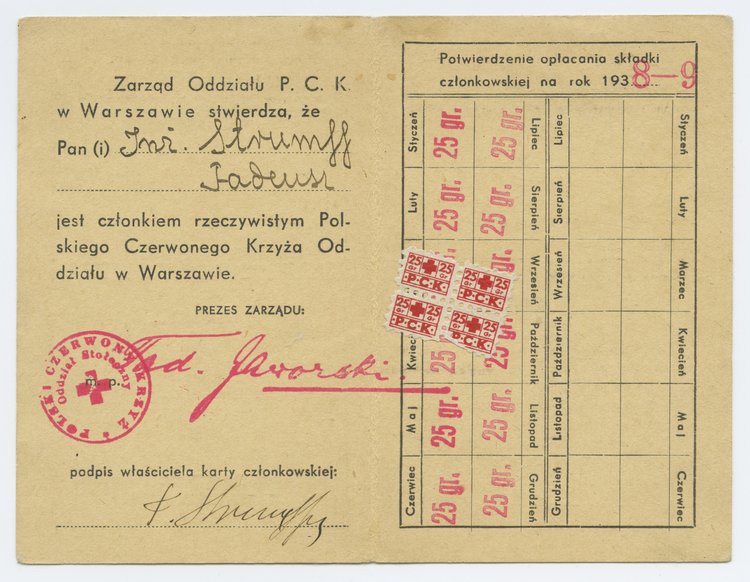 Zarząd Oddziału P. C. K.
w Warszawie stwierdza, że
Pan (i) Inż. Strumff
Tadeusz
jest członkiem rzeczywistym Pol-
skiego Czerwonego Krzyża Od-
działu w Warszawie.
PREZES ZARZĄDU:
Tad. Jaworski.
m. p.
POLSKI CZERWONY KRZYŻ
Oddział Stołeczny
podpis właściciela karty członkowskiej:
T. Strumff
Potwierdzenie opłacania składki
członkowskiej na rok 1938-9
Styczeń 25 gr. 25 gr. Lipiec Lipiec Styczeń
Luty 25 gr. 25 gr. Sierpień Sierpień Luty
Wrzesień Wrzesień Marzec
25 25
GR GR
P.C.K.
25 25
GR GR
P.C.K.
25 25
GR GR
P.C.K.
25 25
GR GR
P.C.K.
Kwiec 25 gr. Październik Październik Kwiecień
Maj 25 gr. 25 gr. Listopad Listopad Maj
Czerwiec 25 gr. 25 gr. Grudzień Grudzień Czerwiec